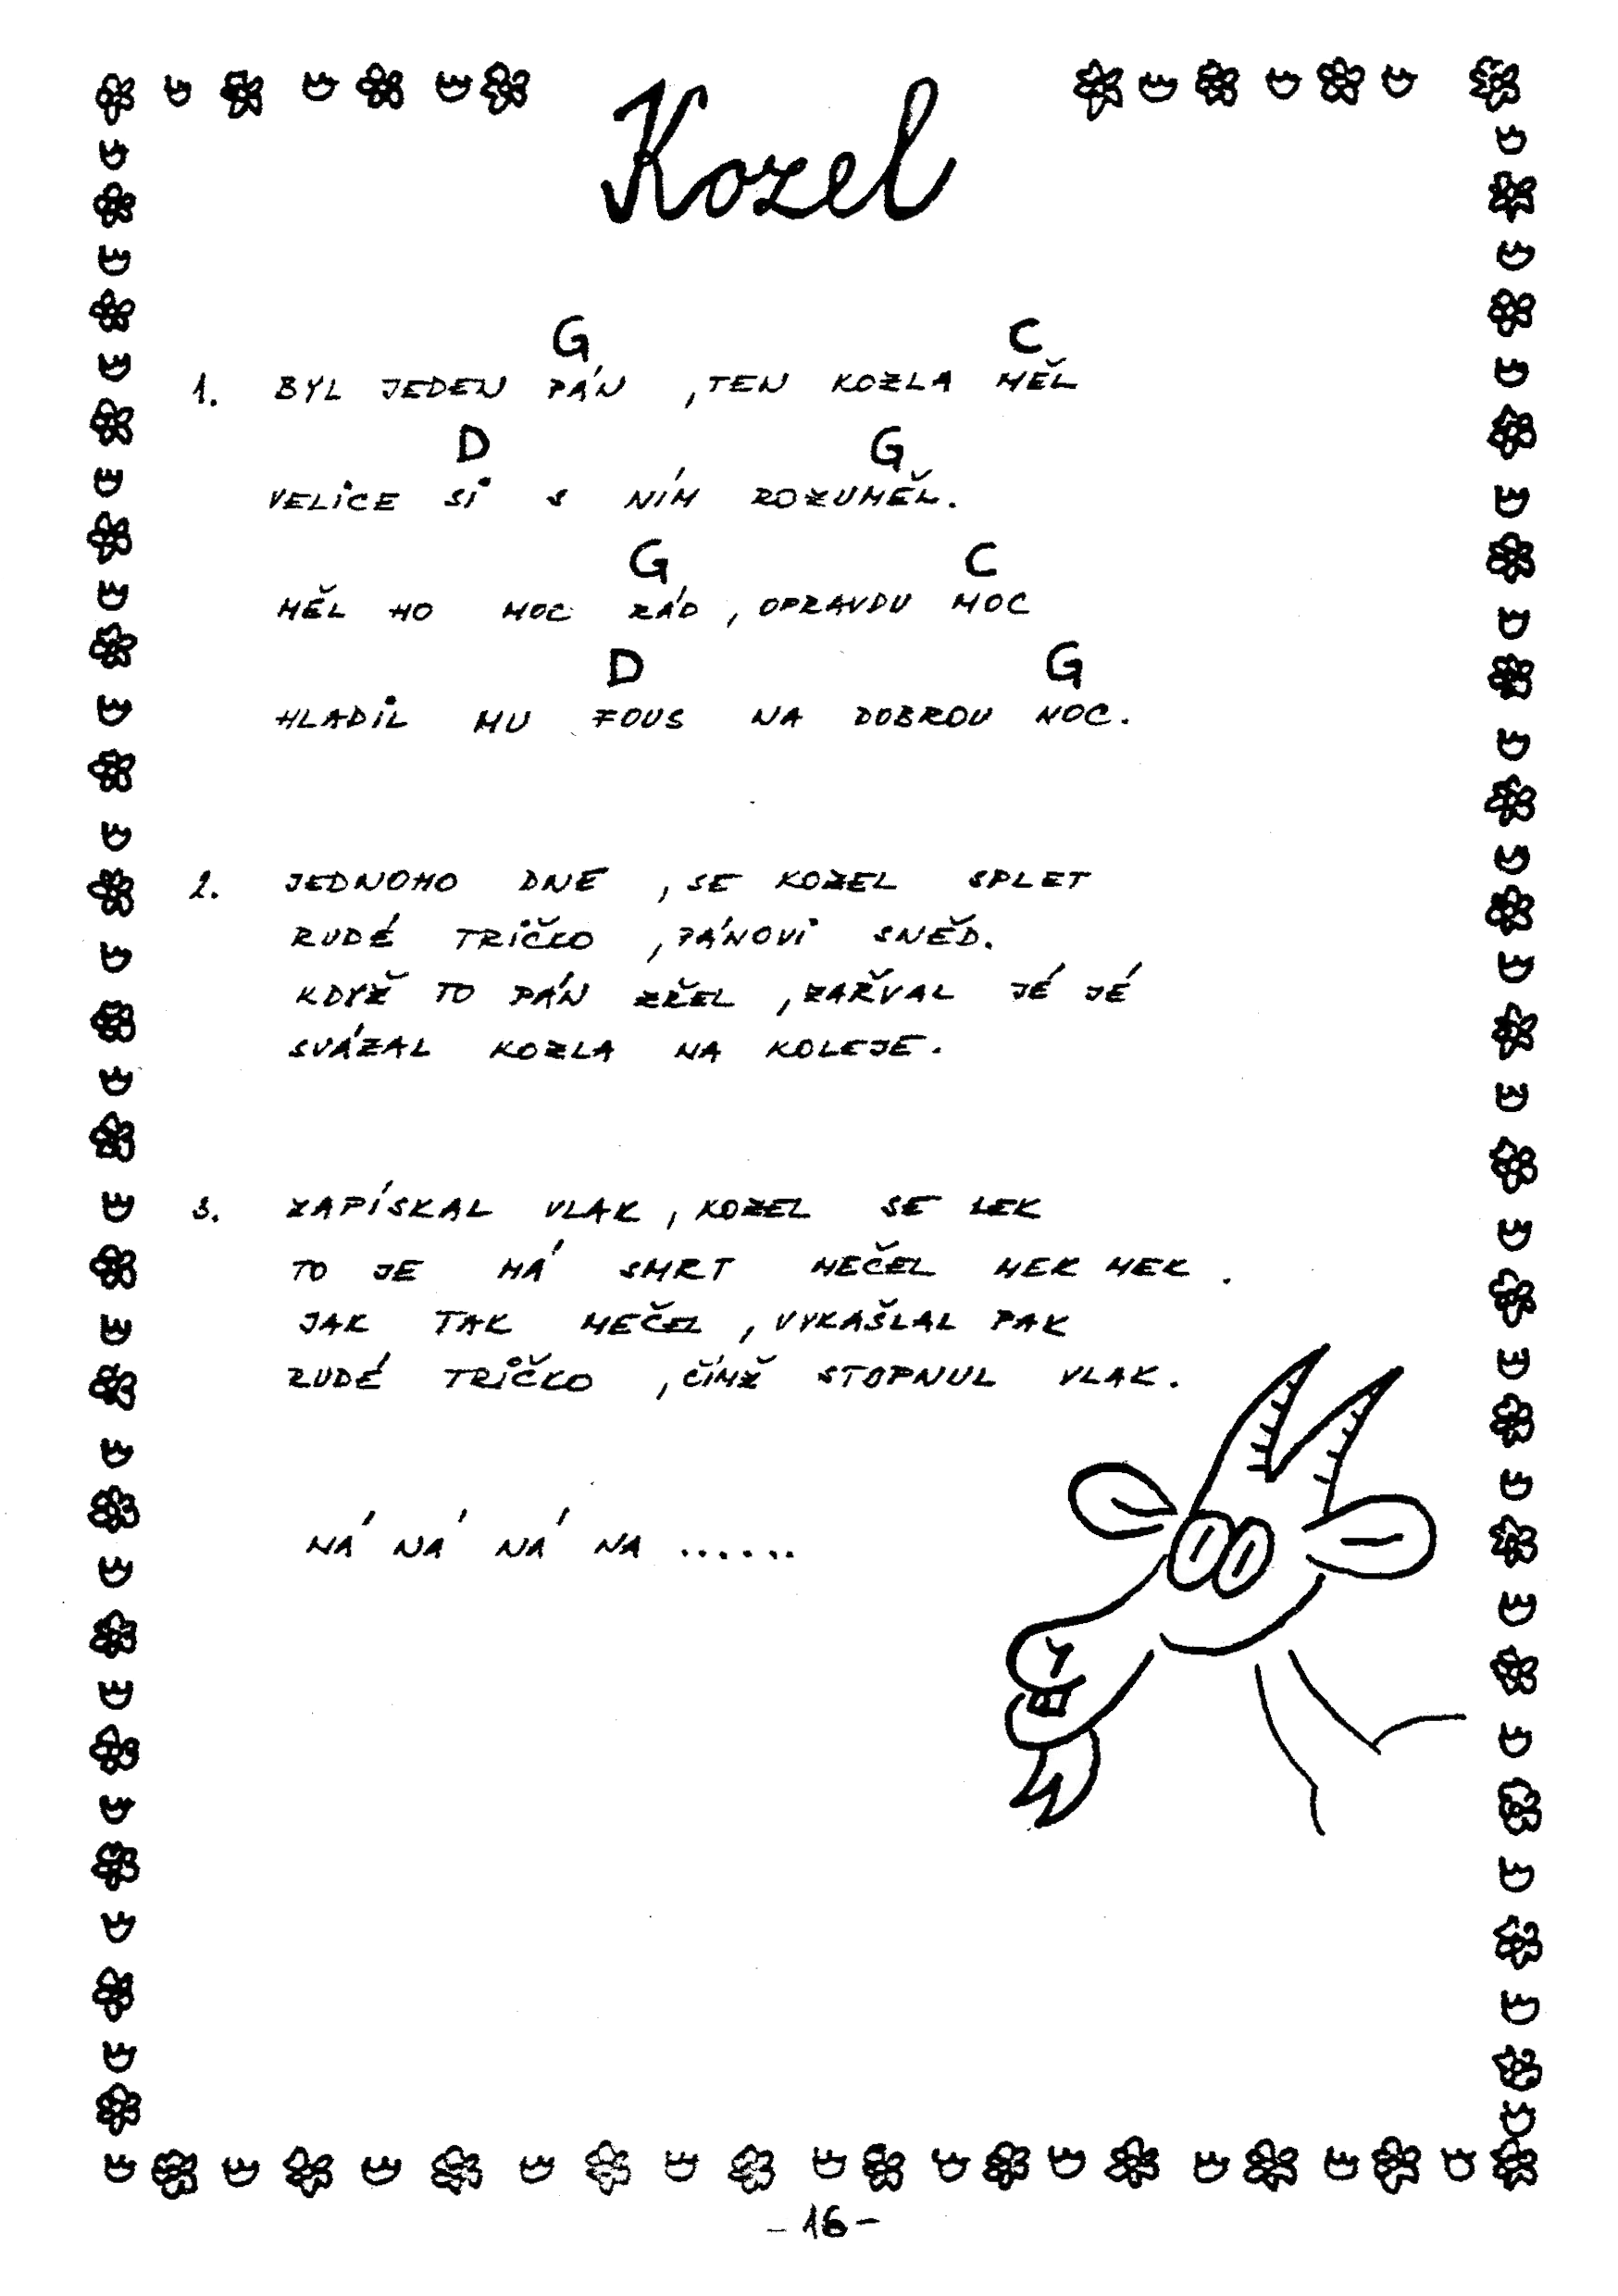 Kozel
G C
1. BYL JEDEN PÁN , TEN KOZLA MĚL
D G
VELICE SI S NÍM ROZUMĚL.
G C
MĚL HO MOC RÁD , OPRAVDU MOC
D G
HLADIL MU FOUS NA DOBROU NOC.
2. JEDNOHO DNE , SE KOZEL SPLET
RUDÉ TRIČKO , PÁNOVI SNĚD.
KDYŽ TO PÁN ZŘEL , ZAŘVAL JÉ JÉ
SVÁZAL KOZLA NA KOLEJE.
3. ZAPÍSKAL VLAK , KOZEL SE LEK
TO JE MÁ SMRT MEČEL MEK MEK .
JAK TAK MEČEL , VYKAŠLAL PAK
RUDÉ TRIČKO , ČÍMŽ STOPNUL VLAK.
NÁ NÁ NÁ NA ......
- 16 -